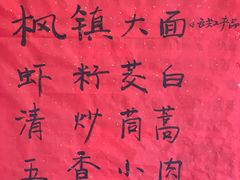 枫镇大面
虾籽茭白
清炒茼蒿
五香小肉